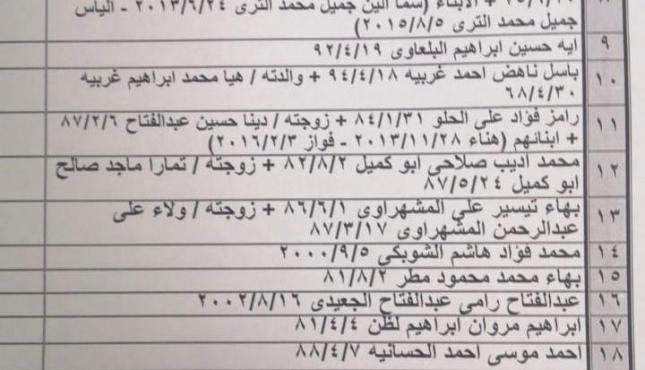 ٨ + الابناء (سما الين جميل محمد الترى ٢٠١٣/٦/٢٤ - الياس
جميل محمد الترى ٢٠١٥/٨/٥)
٩ ايه حسين ابراهيم البلعاوى ٩٢/٤/١٩
١٠ باسل ناهض احمد غربيه ٩٤/٤/١٨ + والدته / هيا محمد ابراهيم غربيه
٦٨/٤/٣٠
١١ رامز فؤاد على الحلو ٨٤/١/٣١ + زوجته / دينا حسين عبدالفتاح ٨٧/٢/٦
+ ابنائهم (هناء ٢٠١٣/١١/٢٨ - فواز ٢٠١٦/٢/٣)
١٢ محمد اديب صلاحى ابو كميل ٨٢/٨/٢ + زوجته / تمارا ماجد صالح
ابو كميل ٨٧/٥/٢٤
١٣ بهاء تيسير على المشهراوى ٨٦/٦/١ + زوجته / ولاء على
عبدالرحمن المشهراوى ٨٧/٣/١٧
١٤ محمد فؤاد هاشم الشوبكى ٢٠٠٠/٩/٥
١٥ بهاء محمد محمود مطر ٨١/٨/٢
١٦ عبدالفتاح رامى عبدالفتاح الجعيدى ٢٠٠٢/٨/١٦
١٧ ابراهيم مروان ابراهيم لظن ٨١/٤/٤
١٨ احمد موسى احمد الحسانيه ٨٨/٤/٧